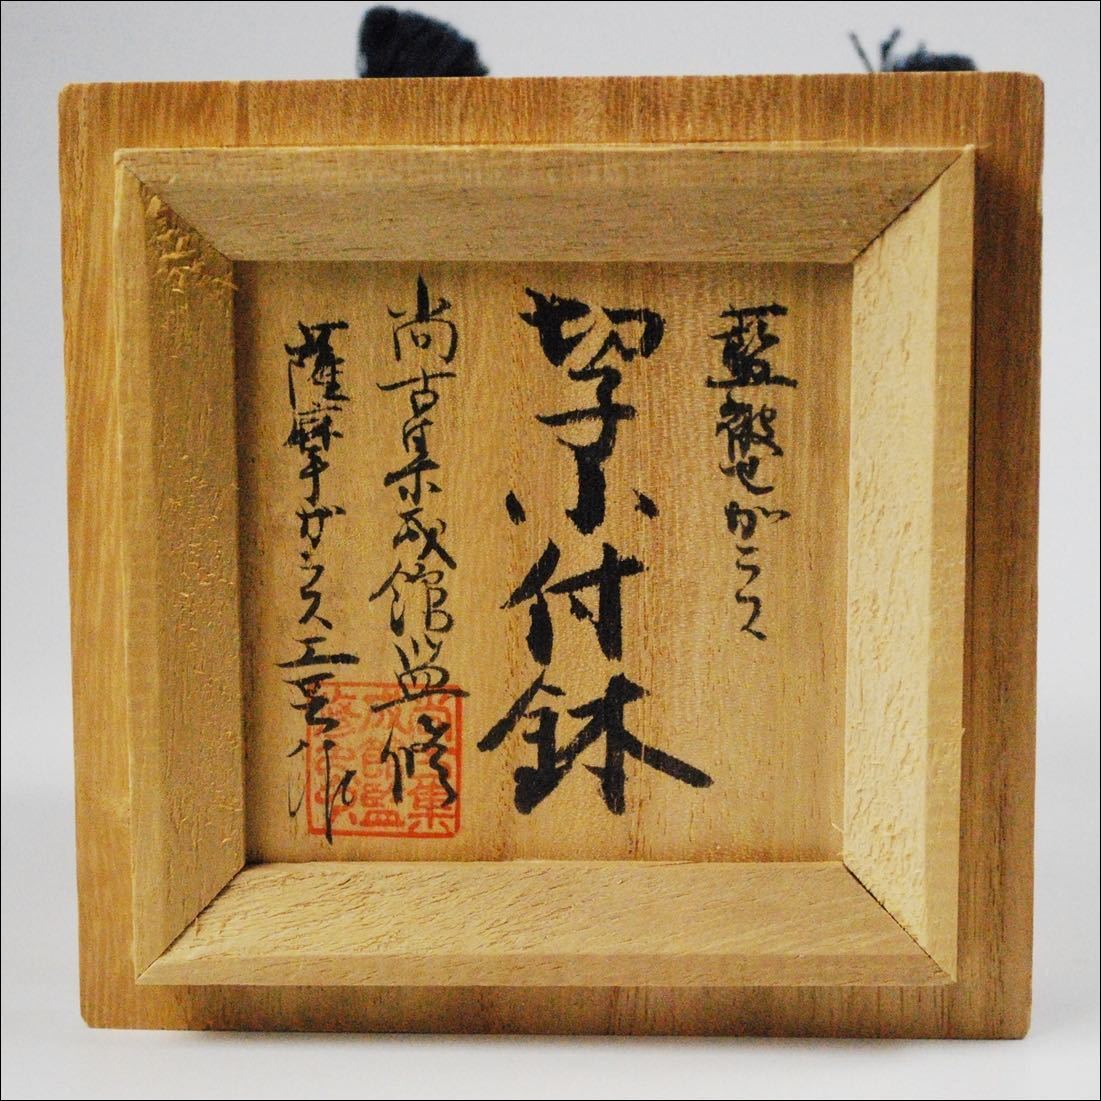 藍被せガラス
切子小付鉢
尚古集成館監修
薩摩ガラス工芸作
尚古集
成館監
修之印